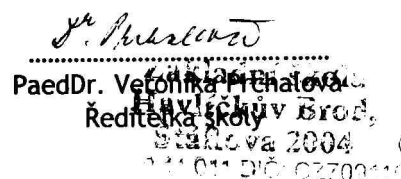 PaedDr. Veronika Prchalová
Ředitelka školy
Základní škola
Havlíčkův Brod,
Štáflova 2004
DIČ: CZ70911